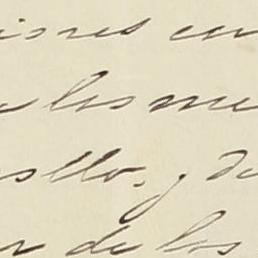 iones en
los me
sello, y de
de los